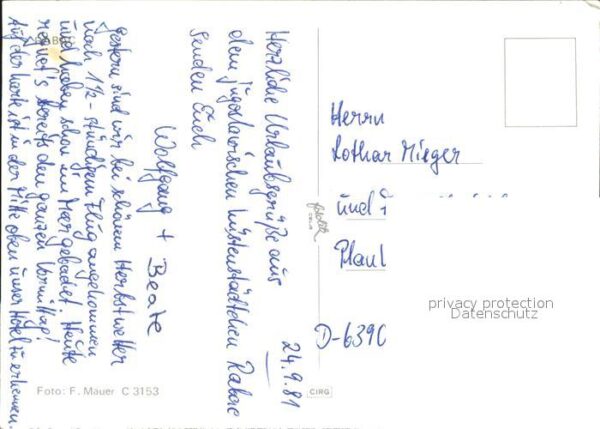 24.9.81
Herzliche Urlaubsgrüße aus
dem jugoslawischen Küstenstädtchen Rabac
senden Euch
Wolfgang + Beate
Gestern sind wir bei schönem Herbstwetter
nach 1½-stündigem Flug angekommen
und haben schon im Meer gebadet. Heute
regnet's bereits den ganzen Vormittag!
Auf der Karte ist in der Mitte oben unser Hotel zu erkennen.
Herrn
Lothar Mieger
und
D-6390
privacy protection
Datenschutz
Foto: F. Mauer C 3153
CIRG